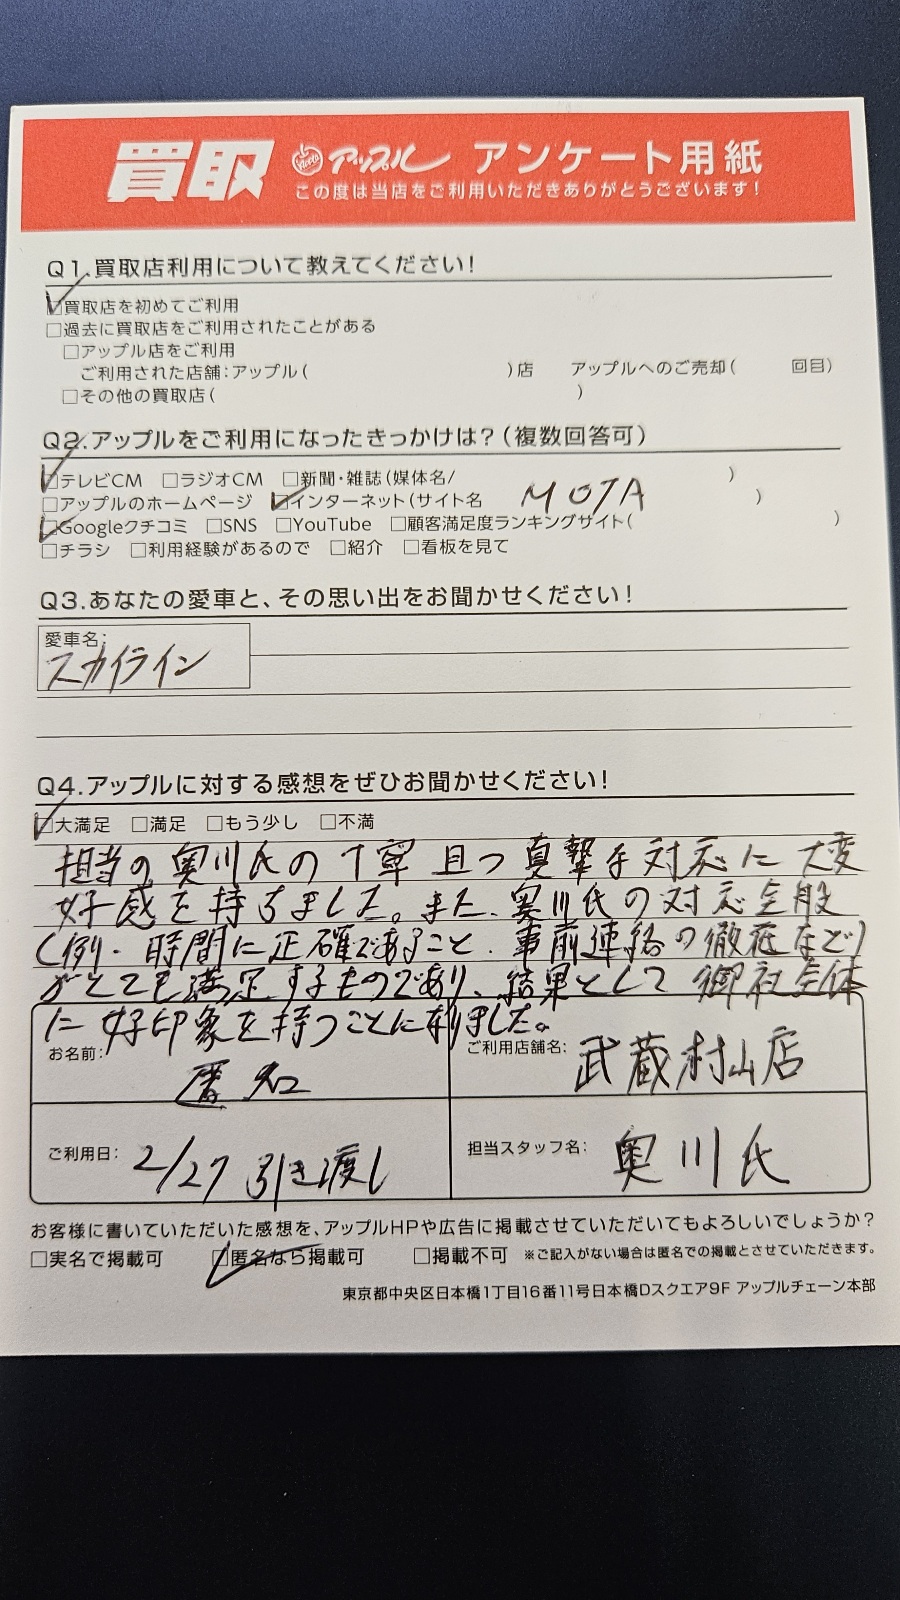 買取 アップル アンケート用紙
この度は当店をご利用いただきありがとうございます!
Q1.買取店利用について教えてください!
☑買取店を初めてご利用
□過去に買取店をご利用されたことがある
□アップル店をご利用
ご利用された店舗:アップル( )店 アップルへのご売却( 回目)
□その他の買取店( )
Q2.アップルをご利用になったきっかけは?(複数回答可)
☑テレビCM □ラジオCM □新聞・雑誌(媒体名/ )
□アップルのホームページ ☑インターネット(サイト名 MOTA )
☑Googleクチコミ □SNS □YouTube □顧客満足度ランキングサイト( )
□チラシ □利用経験があるので □紹介 □看板を見て
Q3.あなたの愛車と、その思い出をお聞かせください!
愛車名:
スカイライン
Q4.アップルに対する感想をぜひお聞かせください!
☑大満足 □満足 □もう少し □不満
担当の奥川氏の丁寧且つ真摯な対応に大変
好感を持ちました。また、奥川氏の対応全般
(例.時間に正確であること、事前連絡の徹底など)
がとても満足するものであり、結果として御社全体
に好印象を持つことになりました。
お名前: 匿名
ご利用店舗名: 武蔵村山店
ご利用日: 2/27 引き渡し
担当スタッフ名: 奥川氏
お客様に書いていただいた感想を、アップルHPや広告に掲載させていただいてもよろしいでしょうか?
□実名で掲載可 ☑匿名なら掲載可 □掲載不可 ※ご記入がない場合は匿名での掲載とさせていただきます。
東京都中央区日本橋1丁目16番11号日本橋Dスクエア9F アップルチェーン本部